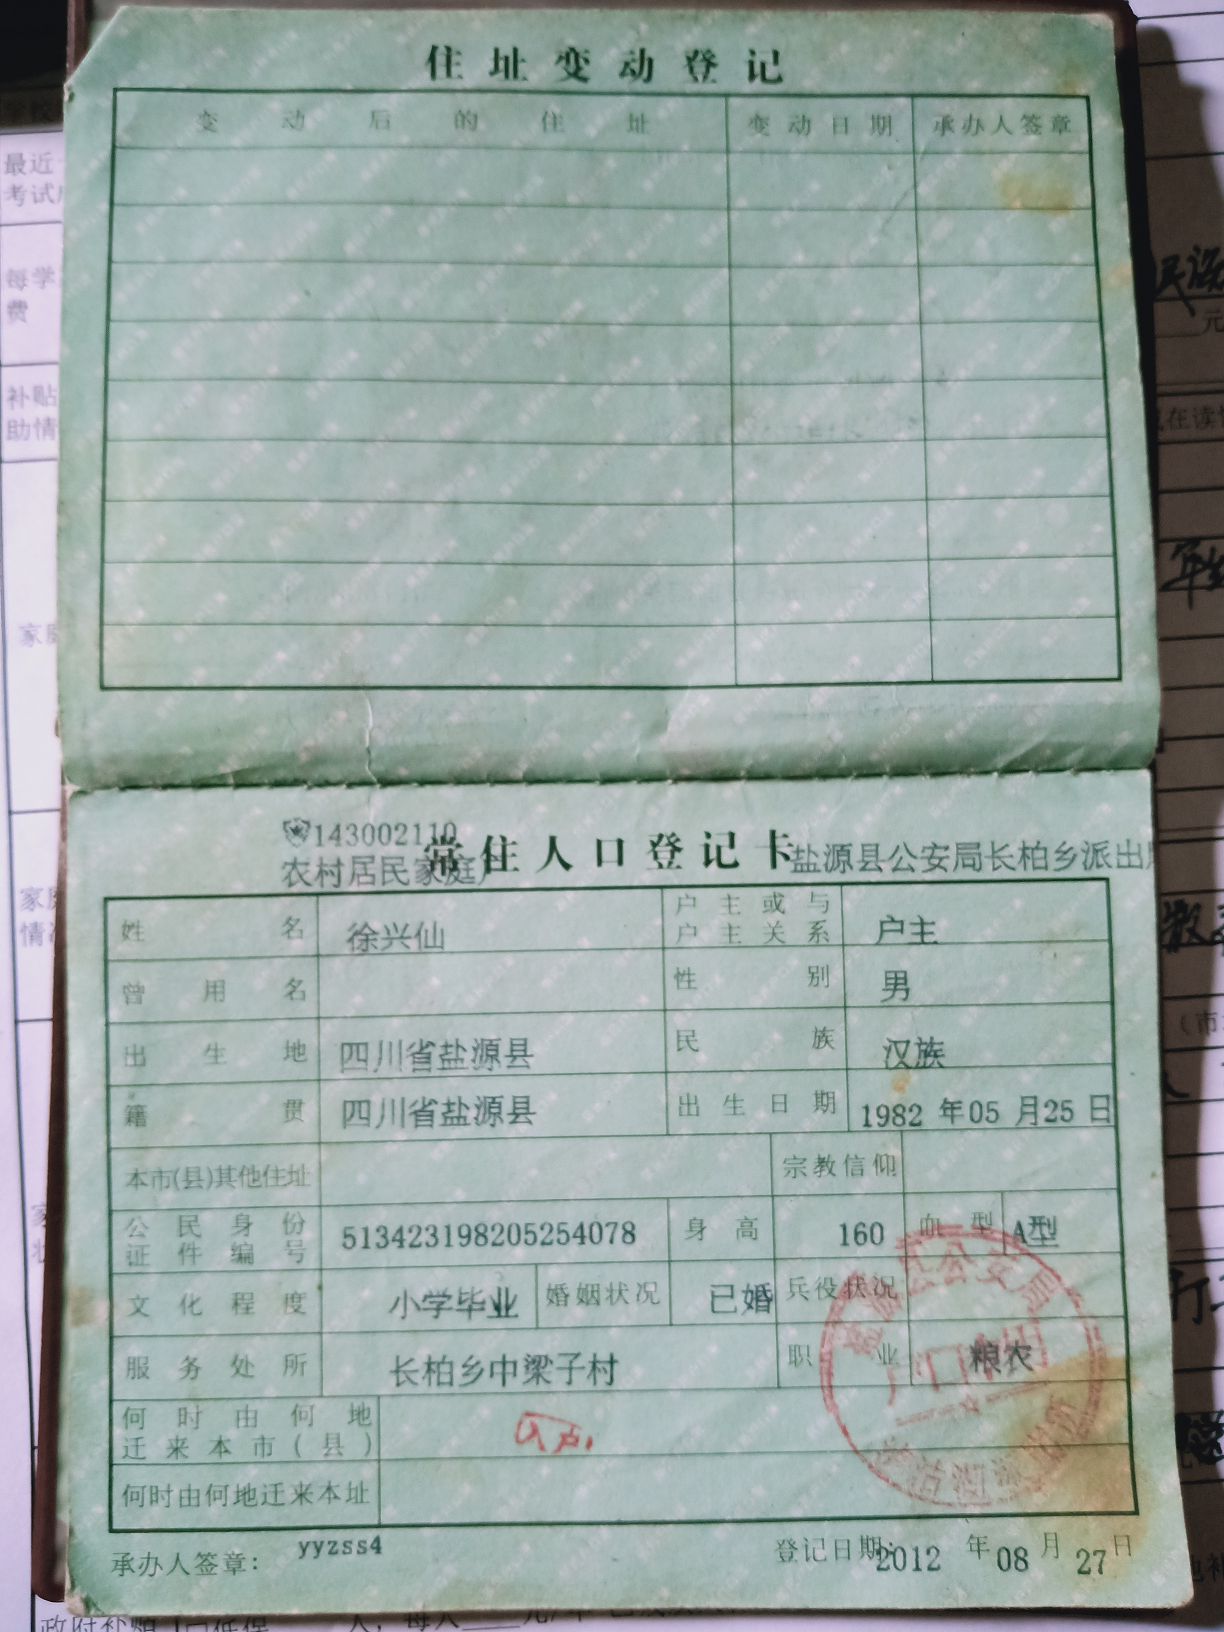 住址变动登记
变动后的住址 变动日期 承办人签章
最近
考试
每学
费
补贴
助情
民
元
在读
143002110
农村居民家庭户
常住人口登记卡
盐源县公安局长柏乡派出
姓名 徐兴仙 户主或与户主关系 户主
曾用名 性别 男
出生地 四川省盐源县 民族 汉族
籍贯 四川省盐源县 出生日期 1982 年05 月25 日
本市(县)其他住址 宗教信仰
公民身份证件编号 513423198205254078 身高 160 血型 A型
文化程度 小学毕业 婚姻状况 已婚 兵役状况
服务处所 长柏乡中梁子村 职业 粮农
何时由何地迁来本市(县)
何时由何地迁来本址
承办人签章: yyzss4 登记日期: 2012 年 08 月 27 日